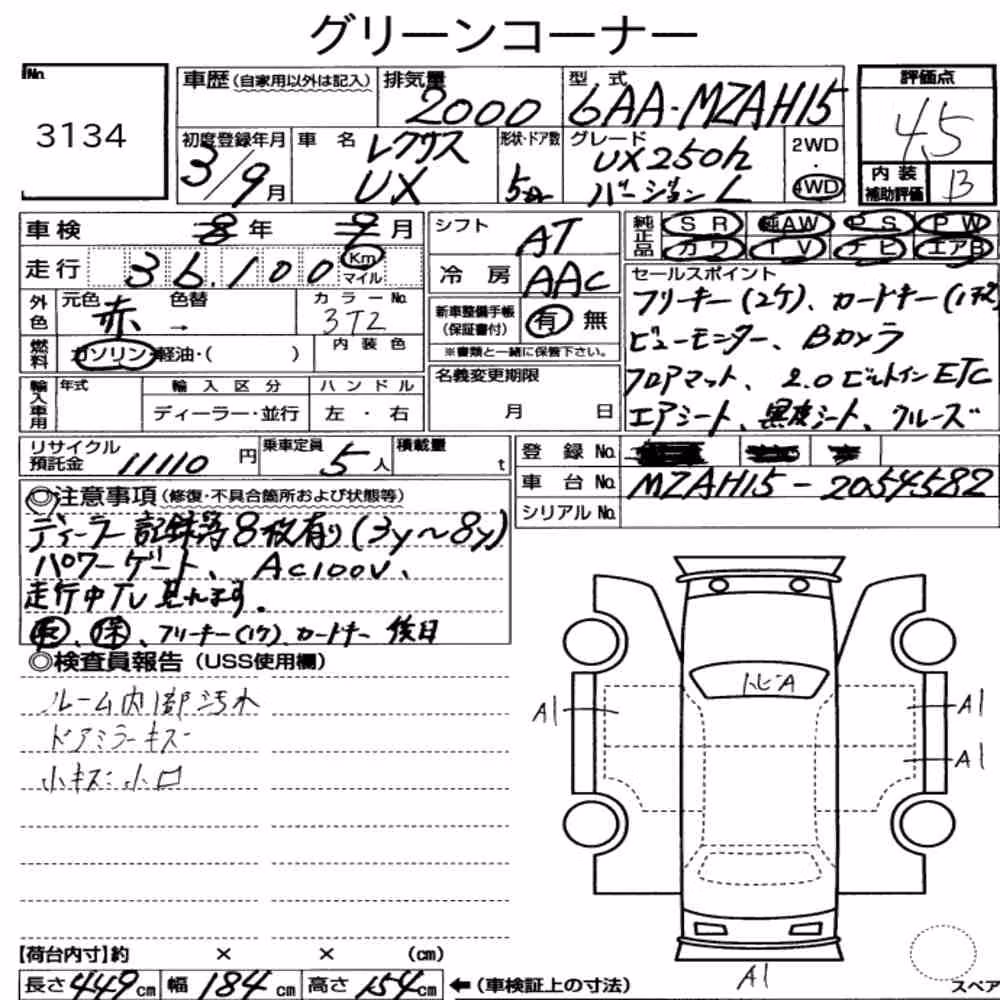 グリーンコーナー
No.
3134
車歴(自家用以外は記入)
排気量
2000
型式
6AA-MZAH15
評価点
45
初度登録年月
3/9月
車名
レクサス
UX
形状・ドア数
5
グレード
UX250h
バージョンL
2WD
・
4WD
内装
補助評価
B
車検
8年
9月
走行
36,100
Km
マイル
外色
元色
赤
色替
→
カラーNo.
3T2
燃料
ガソリン・軽油・( )
内装色
輸入車用
年式
輸入区分
ディーラー・並行
ハンドル
左・右
シフト
AT
冷房
AAC
新車整備手帳
(保証書付)
有 無
※書類と一緒に保管下さい。
名義変更期限
月 日
純正品
SR 純AW PS PW
カワ TV ナビ エアB
セールスポイント
フリーキー(2ケ)、カードキー(1ケ)
ビューモニター、Bカメラ
フロアマット、2.0ビルトインETC
エアシート、黒皮シート、クルーズ
リサイクル
預託金
11110円
乗車定員
5人
積載量
t
登録No.
車台No.
MZAH15-2054582
シリアルNo.
◎注意事項(修復・不具合箇所および状態等)
ディーラー記録簿8枚有り(3y~8y)
パワーゲート、AC100V、
走行中TV見れます。
取、保、フリーキー(1ケ)、カードキー 後日
◎検査員報告(USS使用欄)
ルーム内部汚れ
ドアミラーキズ
小キズ小凹
トビA
A1
A1
A1
A1
【荷台内寸】約 × × (cm)
長さ449cm 幅184cm 高さ154cm ←(車検証上の寸法)
スペア